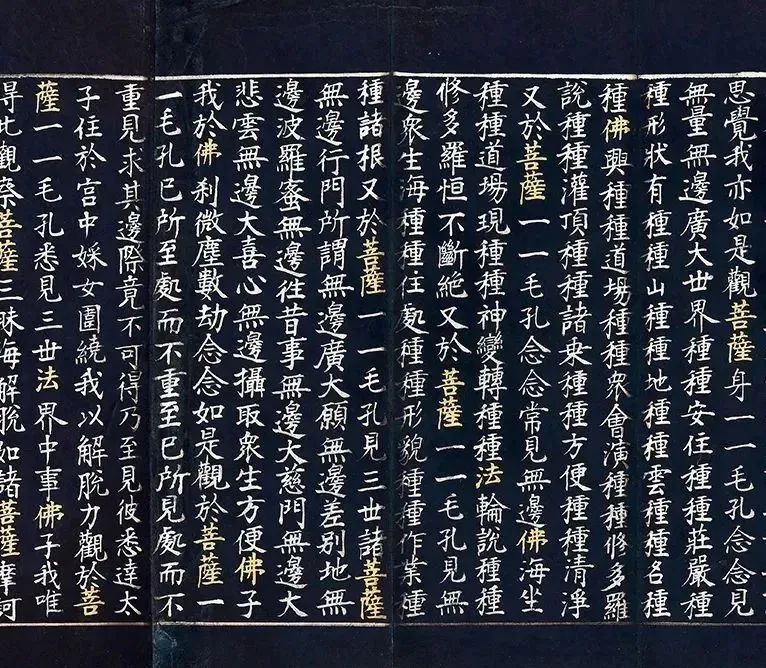 思覺我亦如是觀菩薩身一一毛孔念念見
無量無邊廣大世界種種安住種種莊嚴種
種形狀有種種山種種地種種雲種種名種
種佛興種種道場種種衆會演種種修多羅
說種種灌頂種種諸乘種種方便種種清淨
又於菩薩一一毛孔念念常見無邊佛海坐
種種道場現種種神變轉種種法輪說種種
修多羅恒不斷絕又於菩薩一一毛孔見無
邊衆生海種種住處種種形貌種種作業種
種諸根又於菩薩一一毛孔見三世諸菩薩
無邊行門所謂無邊廣大願無邊差別地無
邊波羅蜜無邊往昔事無邊大慈門無邊大
悲雲無邊大喜心無邊攝取衆生方便佛子
我於佛刹微塵數劫念念如是觀於菩薩一
一毛孔已所至處而不重至已所見處而不
重見求其邊際竟不可得乃至見彼悉達太
子住於宮中婇女圍繞我以解脫力觀於菩
薩一一毛孔悉見三世法界中事佛子我唯
得此觀察菩薩三昧海解脫如諸菩薩摩訶